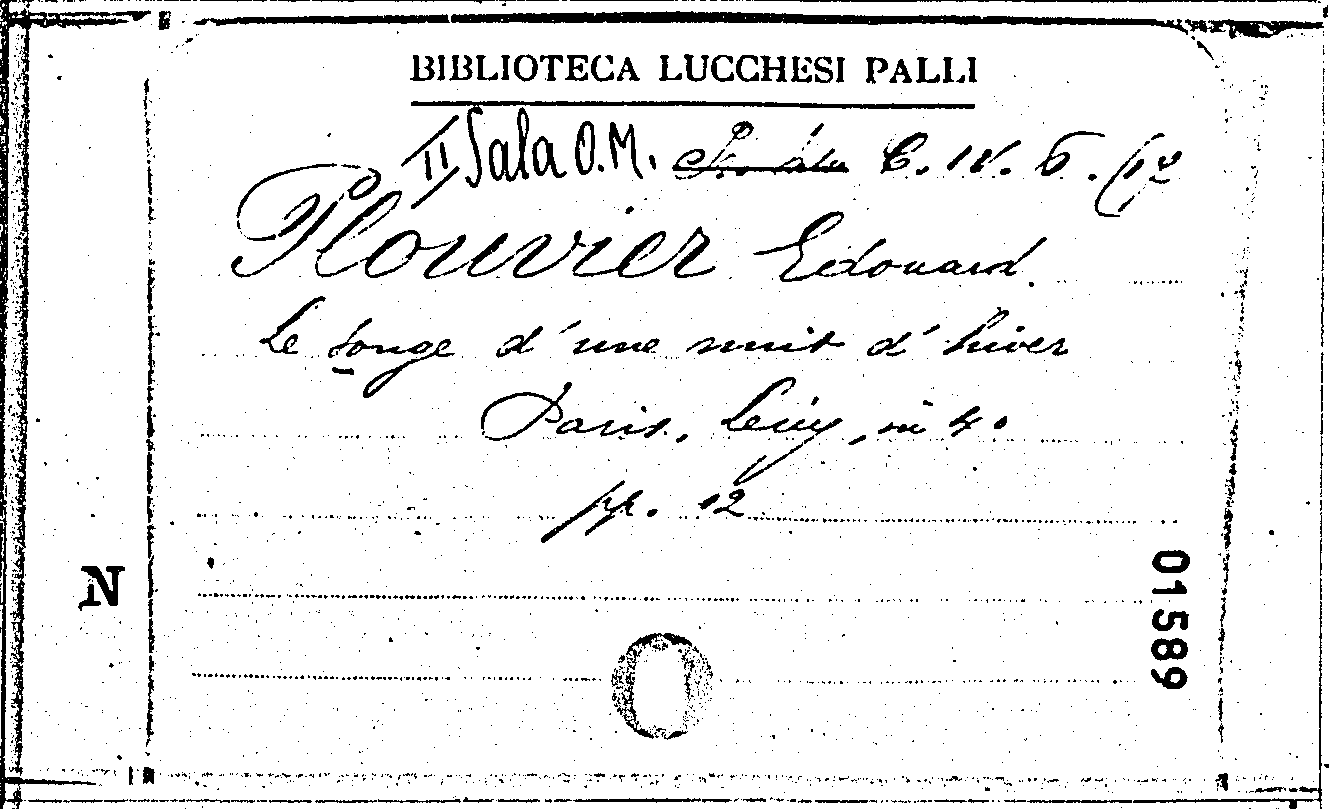 BIBLIOTECA LUCCHESI PALLI
II Sala O.M. C. IV. 6. (12
Plouvier Edouard
Le songe d'une nuit d'hiver
Paris, Lévy, in 4°
pp. 12
N
01589